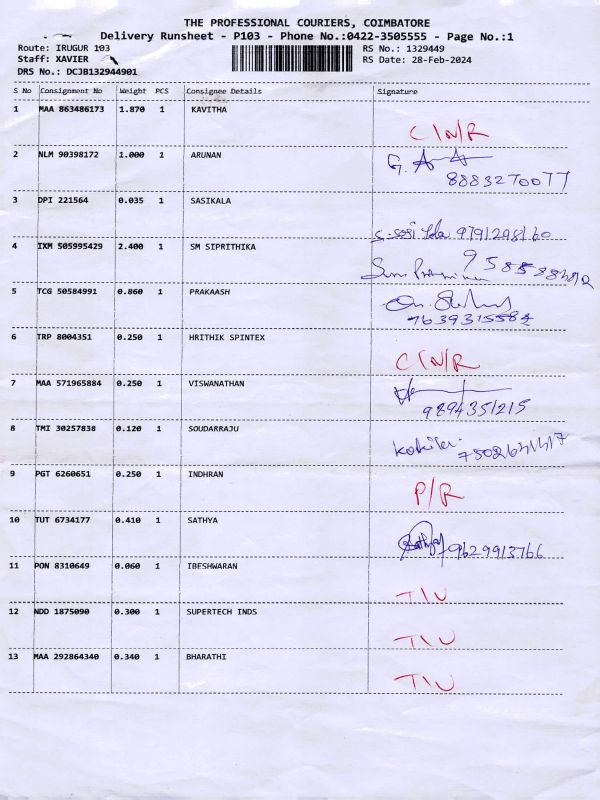 THE PROFESSIONAL COURIERS, COIMBATORE
Delivery Runsheet - P103 - Phone No.:0422-3505555 - Page No.:1
Route: IRUGUR 103 RS No.: 1329449
Staff: XAVIER RS Date: 28-Feb-2024
DRS No.: DCJB132944901
S No Consignment No Weight PCS Consignee Details Signature
1 MAA 863486173 1.870 1 KAVITHA
C/N/R
2 NLM 90398172 1.000 1 ARUNAN
8883270077
3 DPI 221564 0.035 1 SASIKALA
9791298160
4 IXM 505995429 2.400 1 SM SIPRITHIKA
5 TCG 50584991 0.860 1 PRAKAASH
7639315584
6 TRP 8004351 0.250 1 HRITHIK SPINTEX
C/N/R
7 MAA 571965884 0.250 1 VISWANATHAN
9894351215
8 TMI 30257838 0.120 1 SOUDARRAJU
9 PGT 6260651 0.250 1 INDHRAN
P/R
10 TUT 6734177 0.410 1 SATHYA
Sathya 9629913766
11 PON 8310649 0.060 1 IBESHWARAN
12 NDD 1875090 0.300 1 SUPERTECH INDS
13 MAA 292864340 0.340 1 BHARATHI